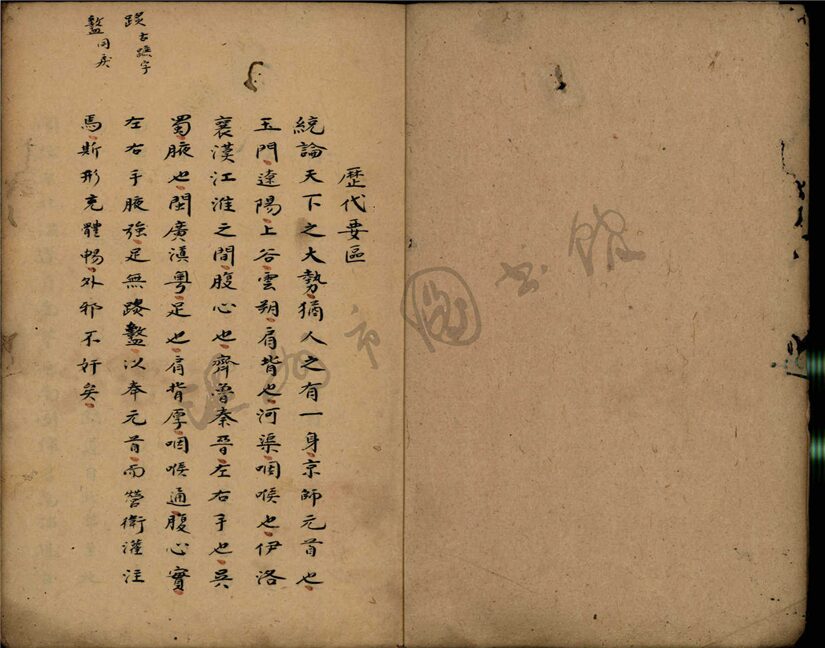 歷代要區
統論天下之大勢猶人之有一身京師元首也
玉門遼陽上谷雲朔肩背也河渠咽喉也伊洛
襄漢江淮之間腹心也齊魯秦晉左右手也吳
蜀腋也閩廣滇粵足也肩背厚咽喉通腹心實
左右手腋強足無𨂂盭以奉元首而營衛灌注
焉斯形充體暢外邪不奸矣
𨂂古蹠字
盭同戾
市图书馆